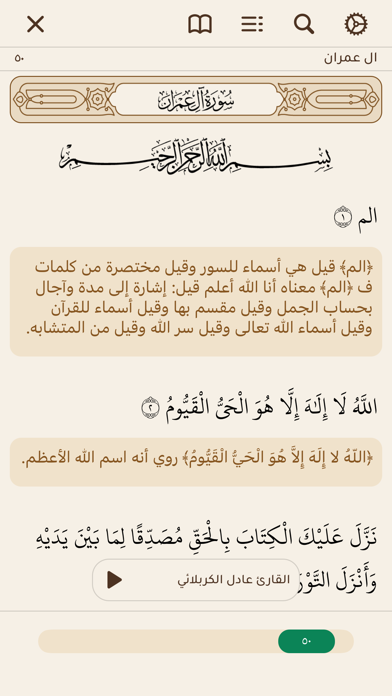 ال عمران
٥٠
سُورَةُ آلِ عِمْرَان
بِسْمِ اللَّهِ الرَّحْمَٰنِ الرَّحِيمِ
الم ١
﴿الم﴾ قيل هي أسماء للسور وقيل مختصرة من كلمات
ف ﴿الم﴾ معناه أنا الله أعلم قيل: إشارة إلى مدة وآجال
بحساب الجمل وقيل مقسم بها وقيل أسماء للقرآن
وقيل أسماء الله تعالى وقيل سر الله وقيل من المتشابه.
اللَّهُ لَا إِلَٰهَ إِلَّا هُوَ الْحَيُّ الْقَيُّومُ ٢
﴿اللّهُ لا إِلَهَ إِلاَّ هُوَ الْحَيُّ الْقَيُّومُ﴾ روي أنه اسم الله الأعظم.
نَزَّلَ عَلَيْكَ الْكِتَابَ بِالْحَقِّ مُصَدِّقًا لِمَا بَيْنَ يَدَيْهِ
وَأَنْزَلَ
القارئ عادل الكربلائي
٥٠